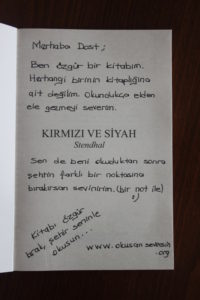 Merhaba Dost;
Ben özgür bir kitabım.
Herhangi birinin kitaplığına
ait değilim. Okundukça elden
ele gezmeyi severim.
KIRMIZI VE SİYAH
Stendhal
Sen de beni okuduktan sonra
şehrin farklı bir noktasına
bırakırsan sevinirim. (bir not ile)
:)
Kitabı özgür
bırak, şehir seninle
okusun...
www.okusan
.org